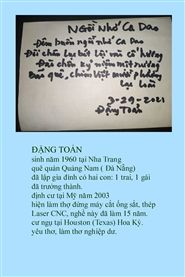 Ngồi Nhớ Ca Dao
Đêm buồn ngồi nhớ Ca Dao
Đôi chân lưu bứt lội về cố hương
Đôi chân kỷ niệm một nương
Bán quê, chim biết mười phương
lạc loài
3-29-2021
Đặng Toản
ĐẶNG TOẢN
sinh năm 1960 tại Nha Trang
quê quán Quảng Nam ( Đà Nẵng)
đã lập gia đình có hai con: 1 trai, 1 gái
đã trưởng thành.
định cư tại Mỹ năm 2003
hiện làm thợ đứng máy cắt ống sắt, thép
Laser CNC, nghề này đã làm 15 năm.
cư ngụ tại Houston (Texas) Hoa Kỳ.
yêu thơ, làm thơ nghiệp dư.